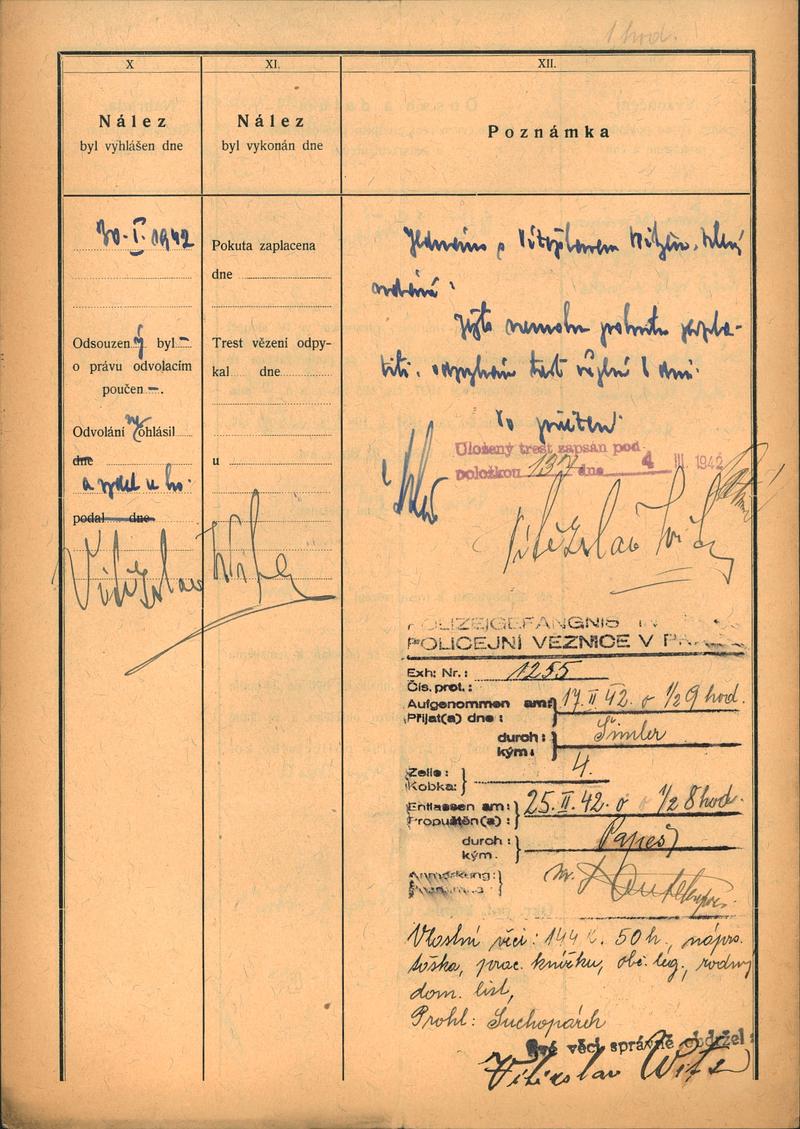 1 hod.
X
Nález
byl vyhlášen dne
XI.
Nález
byl vykonán dne
XII.
Poznámka
30. I. 1942
Odsouzen ý byl –
o právu odvolacím
poučen –.
Odvolání ne ohlásil
dne
a vzdal se ho.
podal dne
Vítězslav
Pokuta zaplacena
dne
Trest vězení odpy-
kal dne
u
s Vítězslavem
nemohu pokutu zapla-
titi, trest vězení 8 dnů.
Uložený trest zapsán pod
položkou 1317 dne 4 III. 1942
Vítězslav
POLIZEIGEFÄNGNIS IN
POLICEJNÍ VĚZNICE V
Exh: Nr.: 1255
Čís. prot.:
Aufgenommen am: 17. II 42. o 1/2 9 hod.
Přijat(a) dne:
durch: Šimler
kým:
Zelle: 4.
Kobka:
Entlassen am: 25. II. 42. o 1/2 8 hod.
Propuštěn(a):
durch: Papež
kým.
Anmerkung:
Vlastní věci: 144 K. 50 h., náprs.
tóška, prac. knížku, obč. leg., rodný
dom. list,
Prohl: Suchopárek
Své věci správně obdržel:
Vítězslav Witz